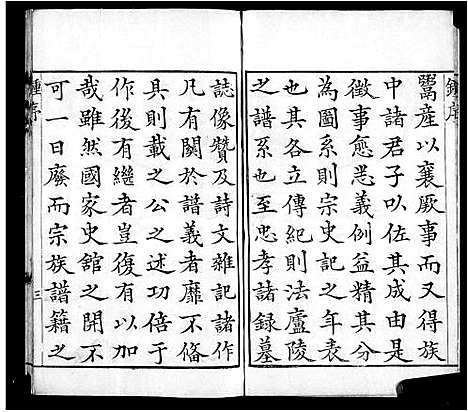 鬻產以襄厥事而又得族
中諸君子以佐其成由是
徵事愈悉義例益精其分
為圖系則宗史記之年表
也其各立傳紀則法廬陵
之譜系也至忠孝諸録墓
誌像贊及詩文雜記諸作
凡有關於譜義者靡不備
具則載之公之述功倍于
作後有繼者豈復有以加
哉雖然國家史館之開不
可一日廢而宗族譜籍之
序
三